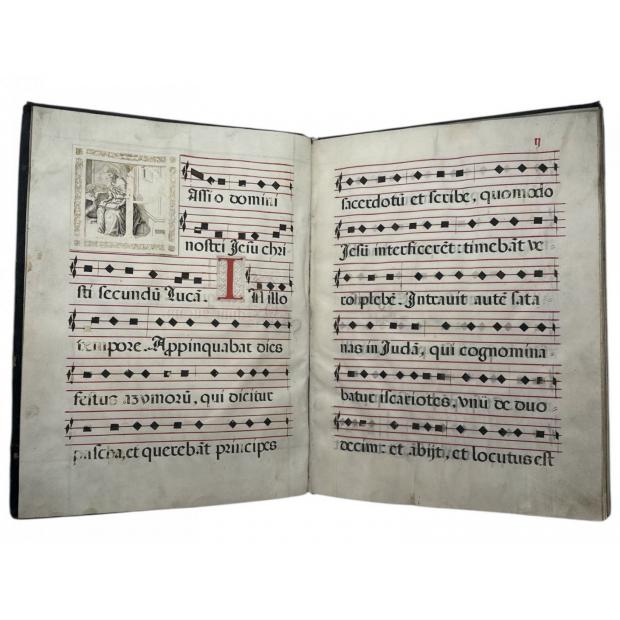 Assi o domini
nostri Jesu chri
sti secundū Lucā. In illo
tempore. Appinquabat dies
festus azymorū, qui dicitur
pascha, et querebāt principes
η
sacerdotū et scribe, quomodo
Jesū interficerēt: timebāt ve
ro plebē. Intravit autē sata
nas in Judā, qui cognomina
batur iscariotes, unū de duo
decim: et abijt, et locutus est